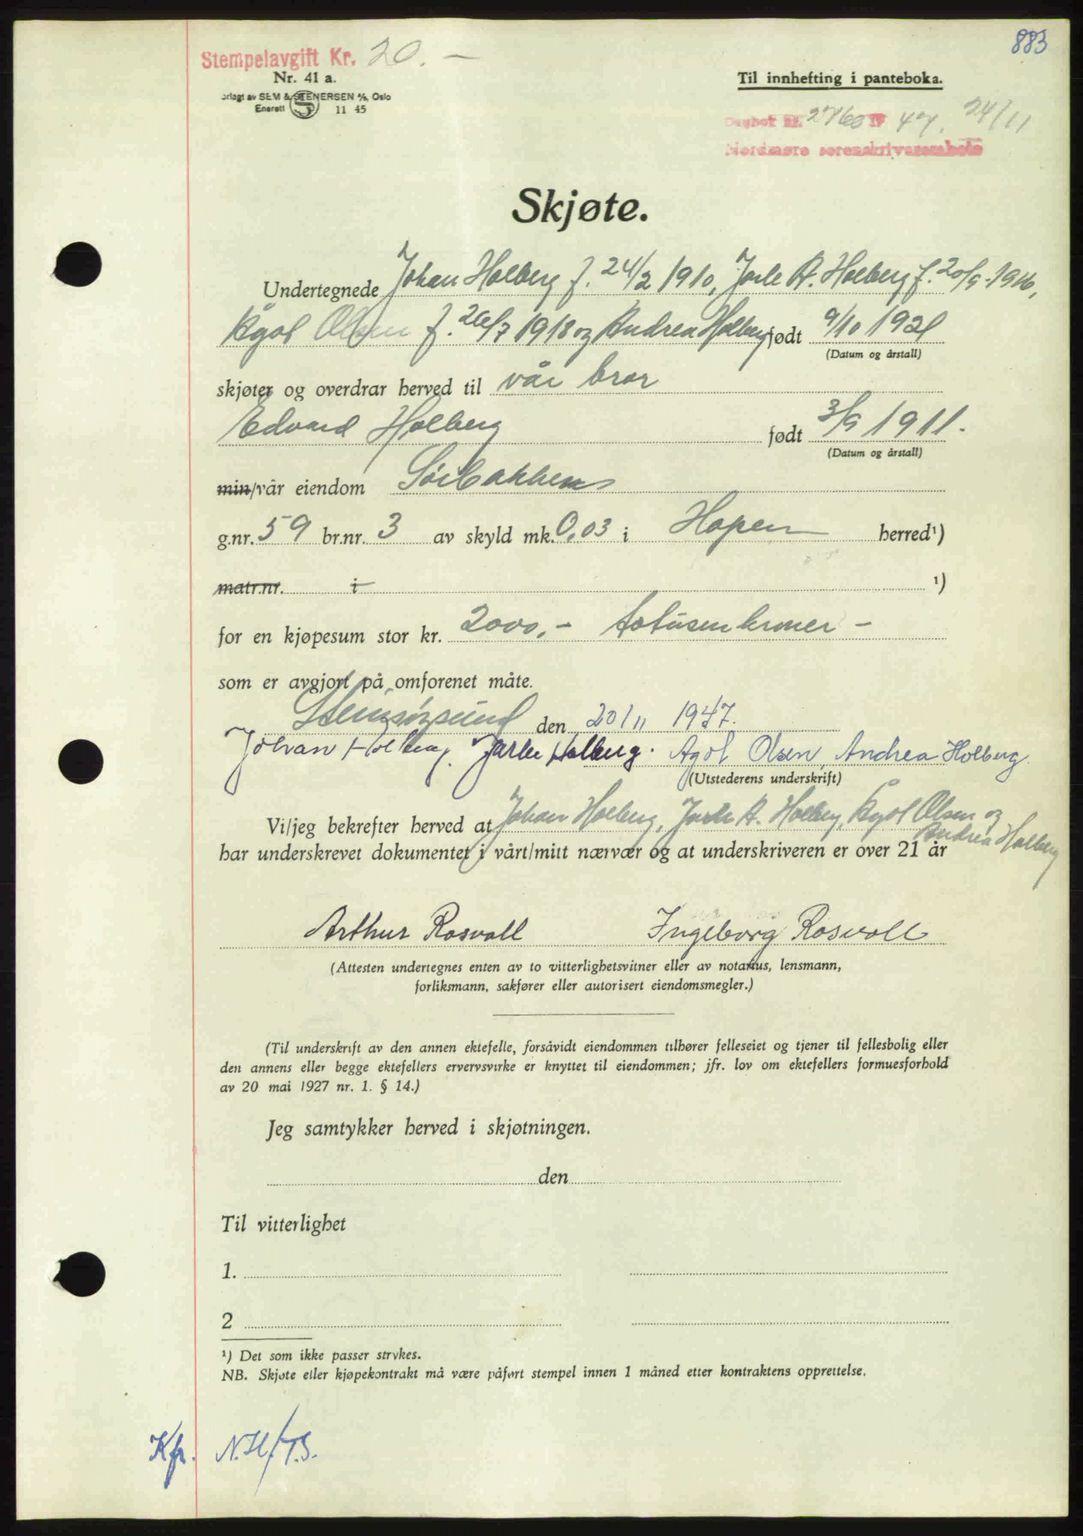 883
Stempelavgift Kr. 20.–
Nr. 41 a.
Til innhefting i panteboka.
SEM & STENERSEN A/S, Oslo
Enerett 11 45
Dagbok nr. 2760 19 47. 24/11
Nordmøre sorenskriverembete
Skjøte.
Undertegnede Johan Holberg f. 24/2 1910, Jarle A. Holberg f. 20/9-1916,
Ågot Olsen f. 26/7 1918 og Andrea Holberg født 9/10 1921
(Datum og årstall)
skjøter og overdrar herved til vår bror
Edvard Holberg født 3/9 1911.
(Datum og årstall)
min/vår eiendom Sørbakken
g.nr. 59 br.nr. 3 av skyld mk. 0,03 i Hopen herred¹)
matr.nr. i ¹)
for en kjøpesum stor kr. 2000,- totusenkroner –
som er avgjort på omforenet måte.
Steinsøysund den 20/11 1947.
Johan Holberg. Jarle Holberg. Agot Olsen, Andrea Holberg.
(Utstederens underskrift)
Vi/jeg bekrefter herved at Johan Holberg, Jarle A. Holberg, Ågot Olsen og
Andrea Holberg
har underskrevet dokumentet i vårt/mitt nærvær og at underskriveren er over 21 år
Arthur Rosvoll Ingeborg Rosvoll
(Attesten undertegnes enten av to vitterlighetsvitner eller av notarius, lensmann,
forliksmann, sakfører eller autorisert eiendomsmegler.)
(Til underskrift av den annen ektefelle, forsåvidt eiendommen tilhører felleseiet og tjener til fellesbolig eller
den annens eller begge ektefellers ervervsvirke er knyttet til eiendommen; jfr. lov om ektefellers formuesforhold
av 20 mai 1927 nr. 1. § 14.)
Jeg samtykker herved i skjøtningen.
den
Til vitterlighet
1.
2
¹) Det som ikke passer strykes.
NB. Skjøte eller kjøpekontrakt må være påført stempel innen 1 måned etter kontraktens opprettelse.
Kfr. N.H./T.S.